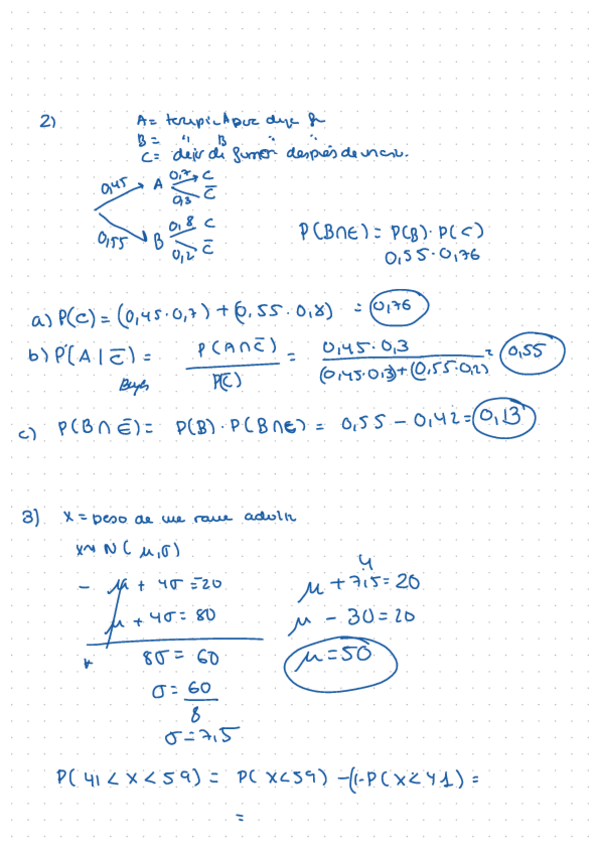 2) A = terapia A para dejar f
B = " B " "
C = dejar de fumar después de un año.
0,45 A 0,7 C
0,3 C̅
0,55 B 0,8 C
0,2 C̅
P(B∩C) = P(B)·P(C)
0,55·0,76
a) P(C) = (0,45·0,7) + (0,55·0,8) = 0,76
b) P(A|C̅) = P(A∩C̅) / P(C̅) = 0,45·0,3 / (0,45·0,3)+(0,55·0,2) = 0,55
Bayes
c) P(B∩C̅) = P(B)·P(B∩C) = 0,55 - 0,42 = 0,13
3) X = peso de una adulta
X~N(μ,σ)
- μ + 4σ = 20
μ + 4σ = 80
8σ = 60
σ = 60/8
σ = 7,5
4
μ + 7,5 = 20
μ - 30 = 20
μ = 50
P(41 < X < 59) = P(X < 59) - (1-P(X < 41) =
=